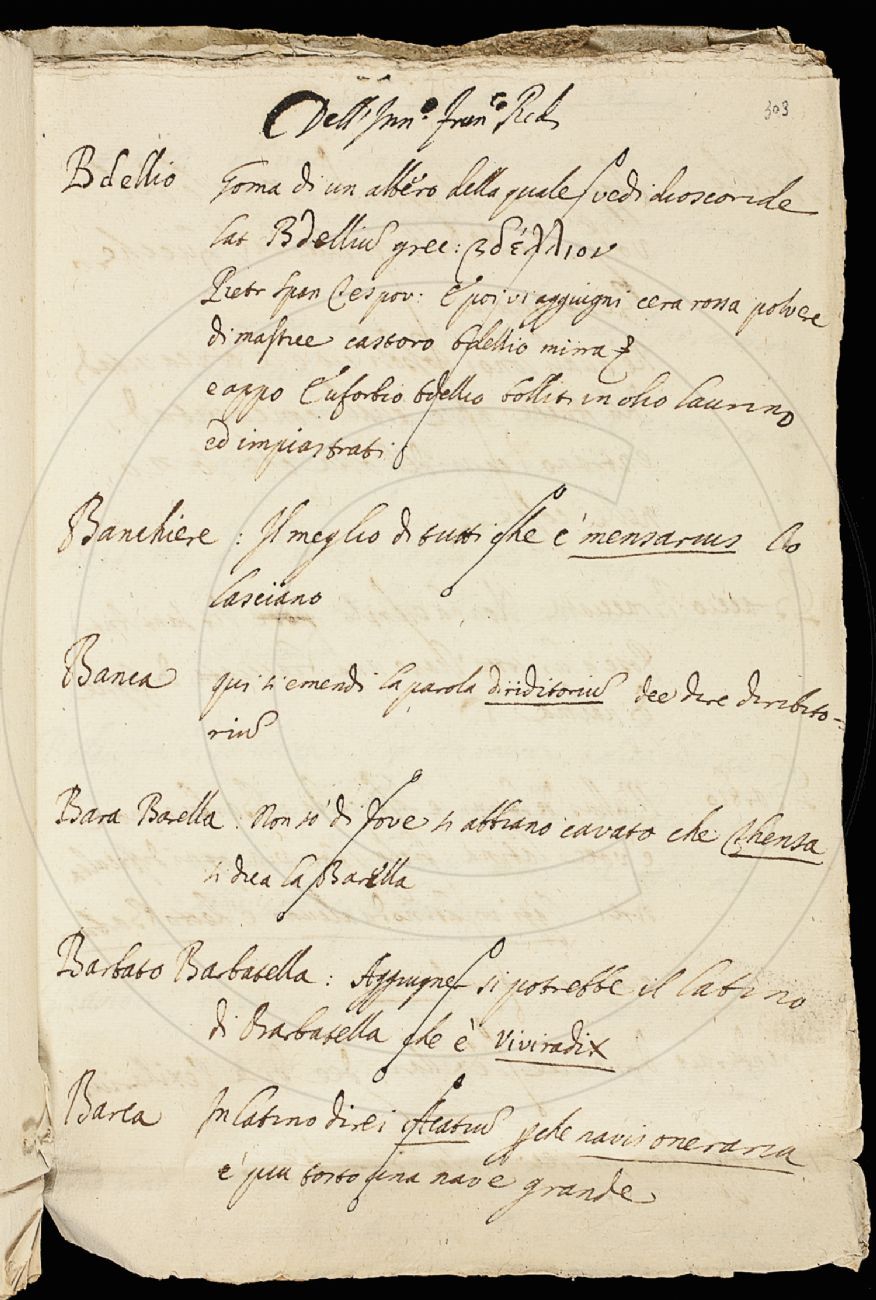 Dell' Inn.º Fran.co Redi
303
Bdellio Goma di un albero della quale vedi dioscoride
Lat Bdelliũ grec: βδέλλιον
Pietr Span Tes pov: E poi vi aggiugni cera rossa polvere
di mastice castoro bdellio mirra
e appo Euforbio bdellio bolliti in olio laurino
ed impiastrati
Banchiere : Il meglio di tutti che è mensarius lo
lasciano
Banca qui si emendi la parola diriditoriũ dee dire diribito-
riũ
Bara Barella : Non so di dove si abbiano cavato che Thensa
si dica la Barella
Barbato Barbatella : Aggiugner si potrebbe il latino
di Barbatella che è Viviradix
Barca In latino direi pche navis oneraria
è piu tosto una nave grande